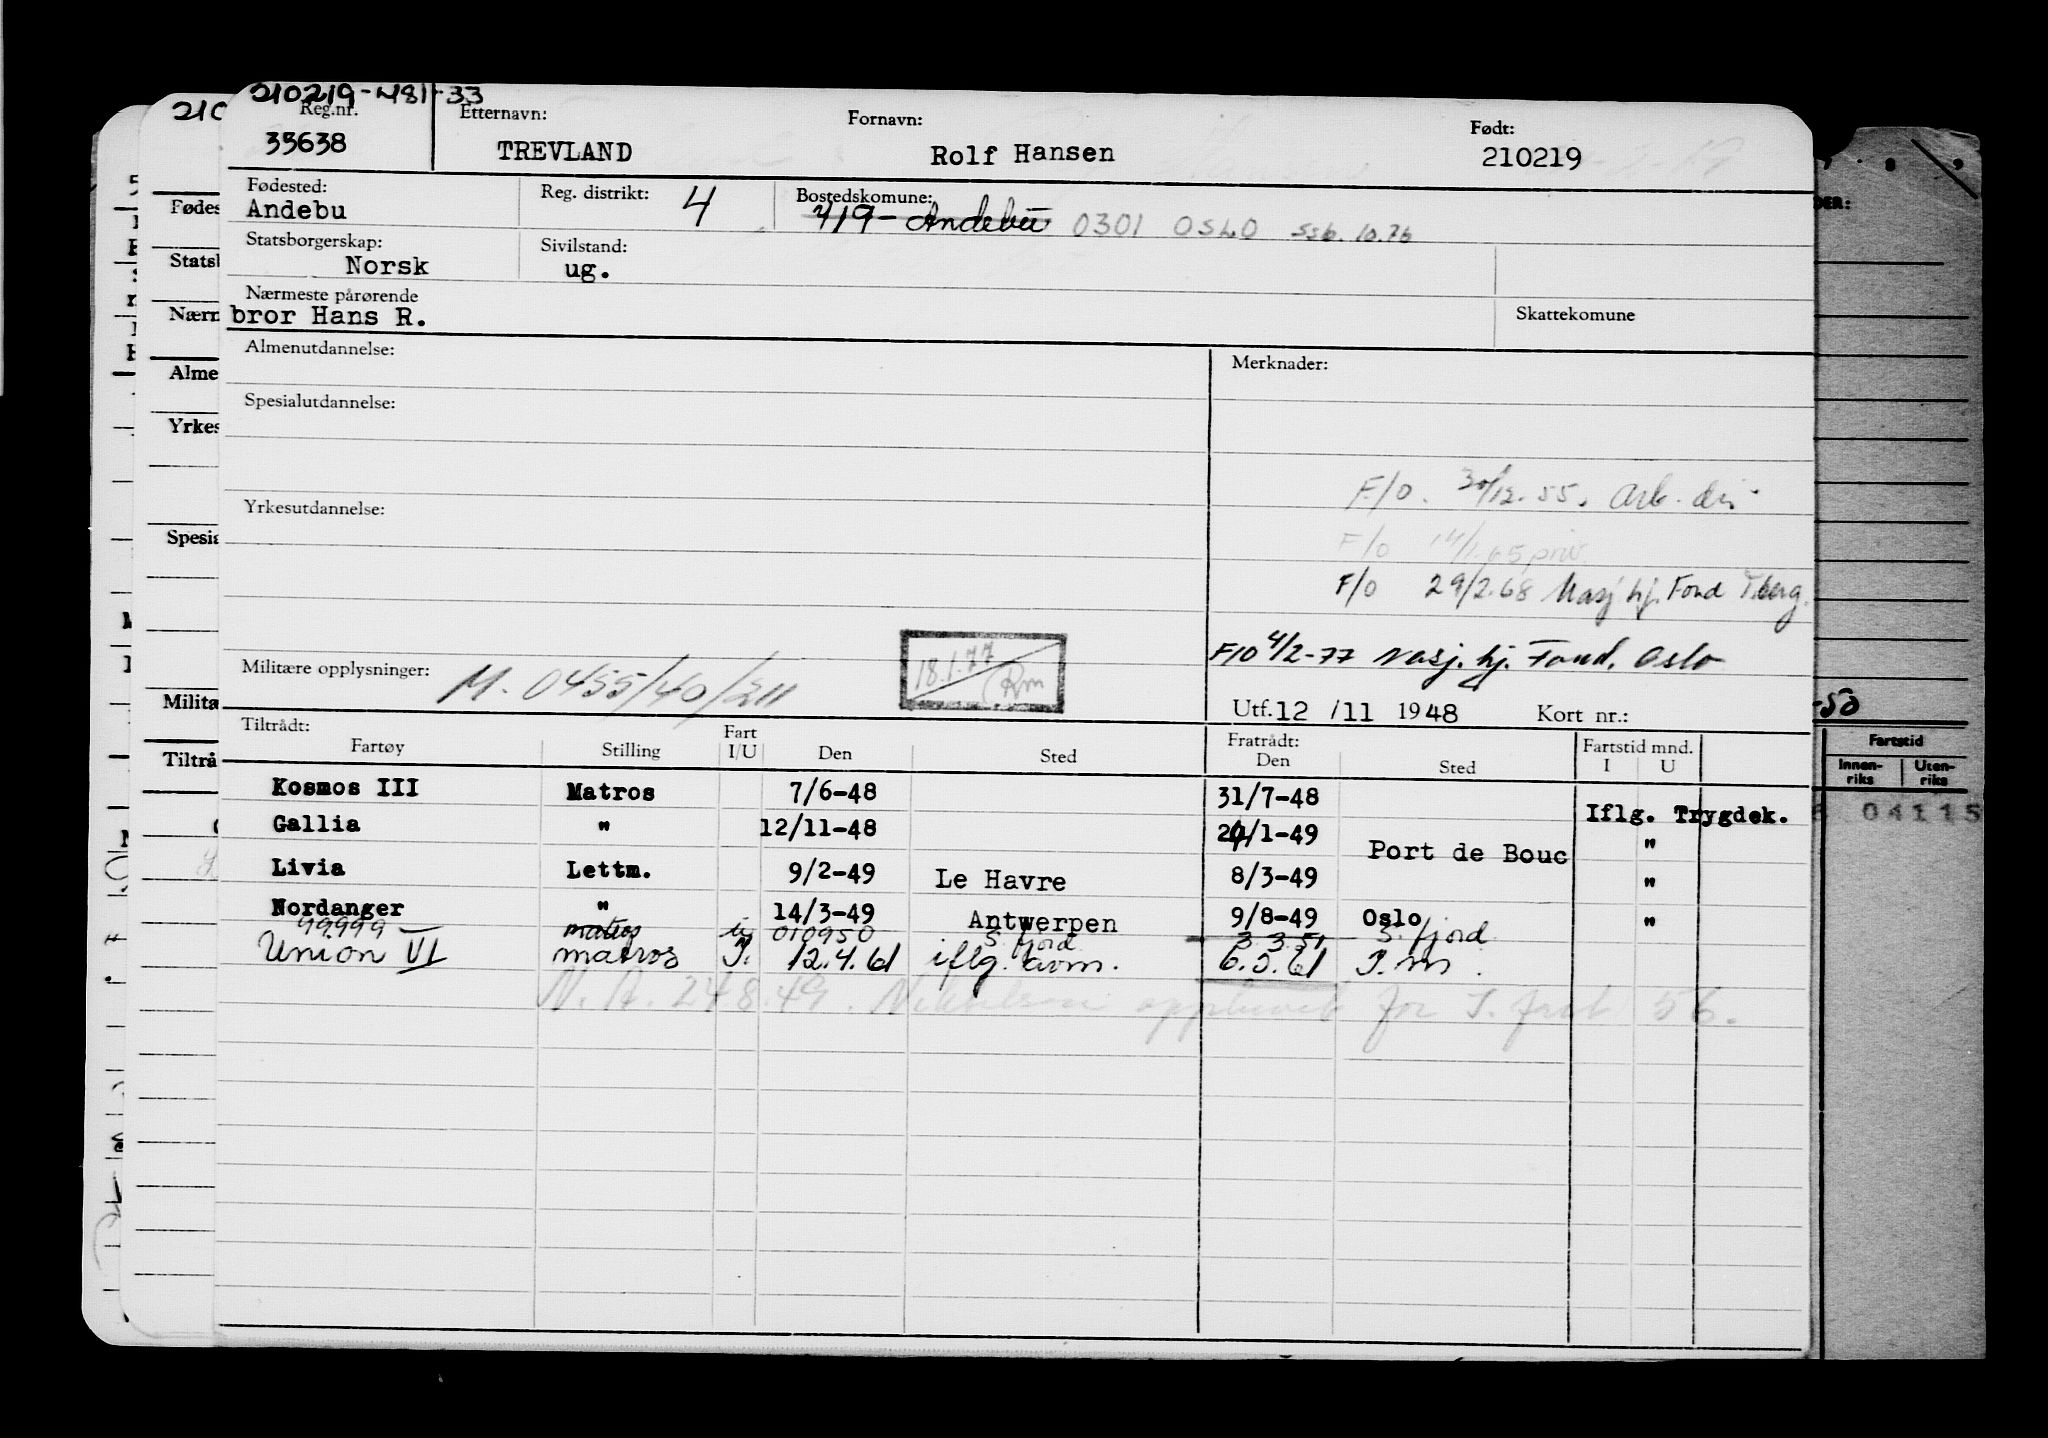 210219-481-33
Reg.nr. Etternavn: Fornavn: Født:
33638 TREVLAND Rolf Hansen 210219
Fødested: Reg. distrikt: 4 Bostedskomune:
Andebu 719 - Andebu 0301 OSLO SSB. 10.76
Statsborgerskap: Sivilstand:
Norsk ug.
Nærmeste pårørende Skattekomune
bror Hans R.
Almenutdannelse: Merknader:
Spesialutdannelse:
F/O. 30/12.55. Arb. dir.
Yrkesutdannelse:
F/O 14/1.65 priv
F/O 29/2.68 Nasj. hj. Fond T.berg.
F/O 4/2-77 Nasj. hj. Fond. Oslo
Militære opplysninger: M. 0455/40/211 18.1.77 Rm
Utf. 12/11 1948 Kort nr.:
Tiltrådt: Fart Fratrådt: Fartstid mnd.
Fartøy Stilling I/U Den Sted Den Sted I U
Kosmos III Matros 7/6-48 31/7-48 Iflg. Trygdek.
Gallia " 12/11-48 /1-49 Port de Bouc "
Livia Lettm. 9/2-49 Le Havre 8/3-49 "
Nordanger " 14/3-49 Antwerpen 9/8-49 Oslo "
99999 matros 010950 S. fjord 3 3 51 S. fjord
Union VI matros I. 12.4.61 iflg. avm. 6.5.61 I.m.
N. A. 24.8.49. for 56.
210
Fødes
Stats
Nærm
Alme
Yrkes
Spesia
Milita
Tiltrå
-50
Fartstid
Innen-
riks
Uten-
riks
04115